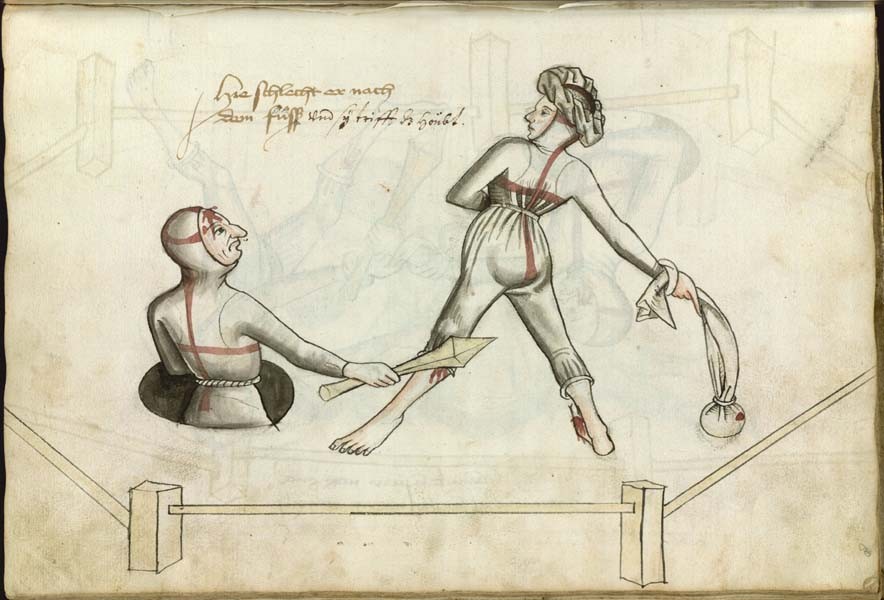 Hie schlecht er nach
dem fuſſ und sy trifft dz houbt.